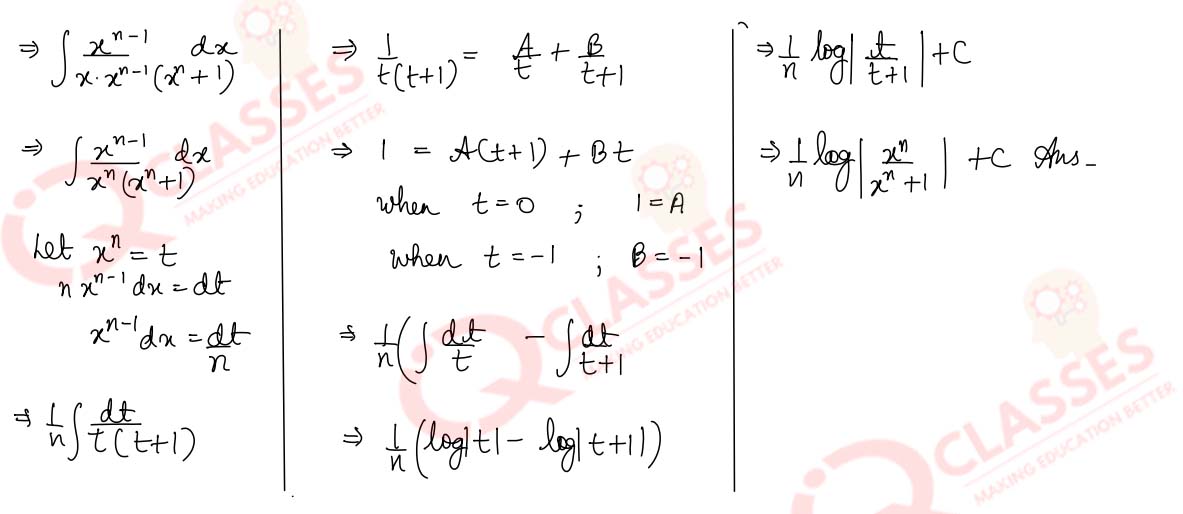 ⇒ ∫ x^(n-1) dx / (x·x^(n-1)(x^n+1))
⇒ ∫ x^(n-1) dx / (x^n(x^n+1))
Let x^n = t
n x^(n-1) dx = dt
x^(n-1) dx = dt/n
⇒ 1/n ∫ dt / (t(t+1))
⇒ 1/(t(t+1)) = A/t + B/(t+1)
⇒ 1 = A(t+1) + Bt
when t=0 ; 1=A
when t=-1 ; B=-1
⇒ 1/n (∫ dt/t - ∫ dt/(t+1)
⇒ 1/n (log|t| - log|t+1|)
⇒ 1/n log| t/(t+1) | + C
⇒ 1/n log| x^n/(x^n+1) | + C Ans-
CLASSES
MAKING EDUCATION BETTER
IQ CLASSES
MAKING EDUCATION BETTER
IQ CLASSES
MAKING EDUCATION BETTER